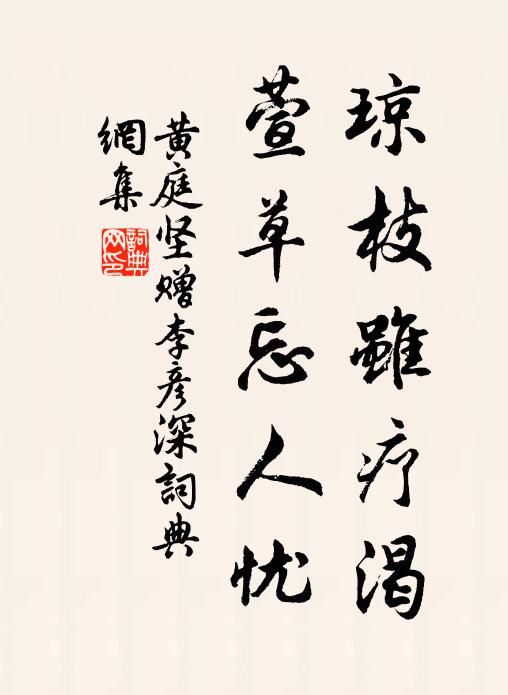 琼枝雖疗渴
萱草忘人忧
黄庭坚赠李彦深詞典
網集
詞典
网印